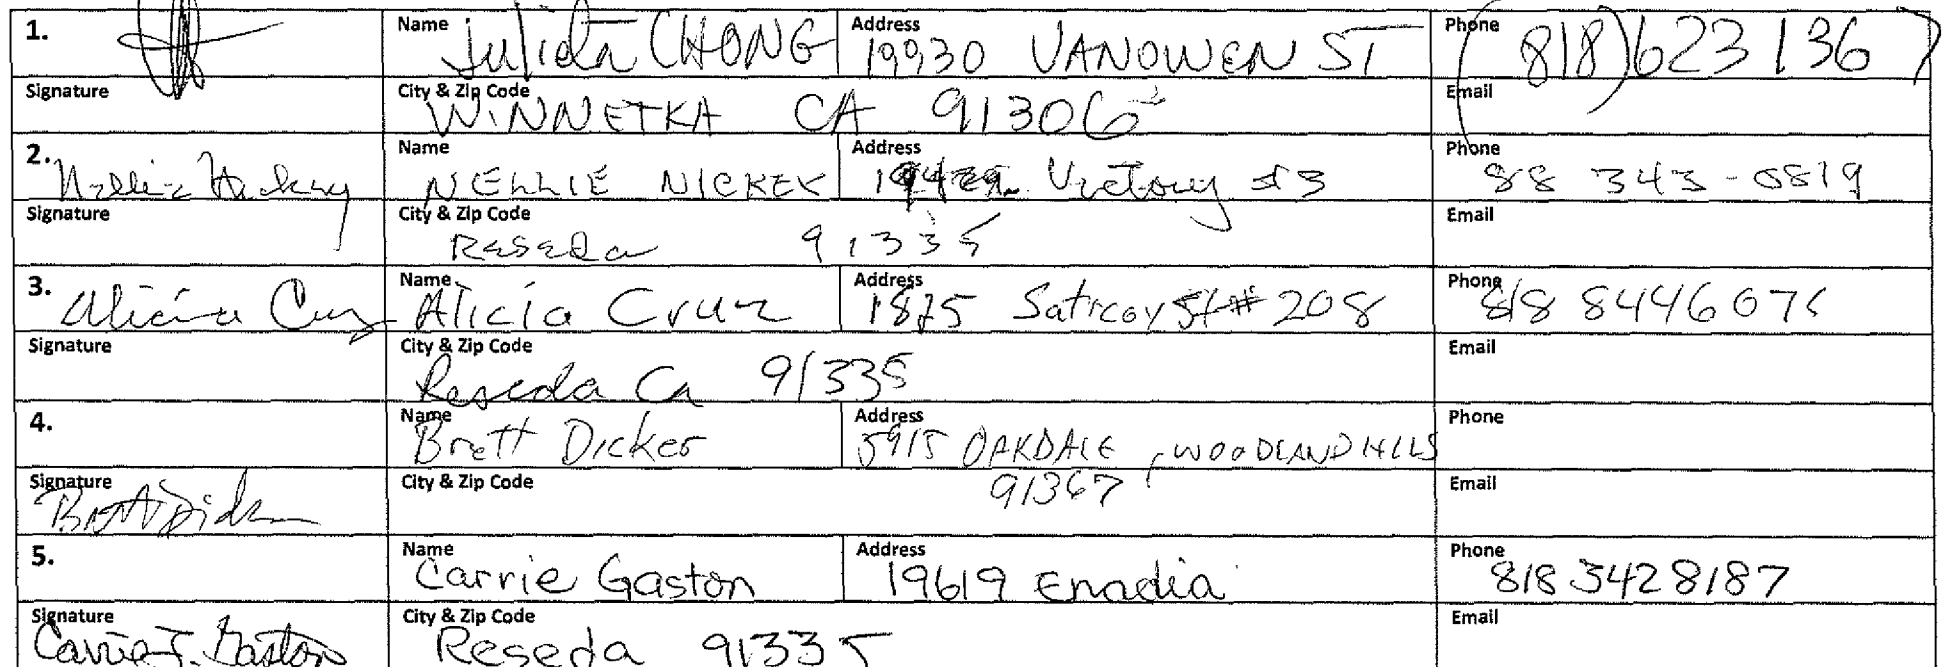 1. Name Julieta CHONG Address 19930 VANOWEN ST Phone (818) 623 1367
Signature City & Zip Code WINNETKA CA 91306 Email
2. Name NELLIE Address Victory Phone 88 343-0819
Signature City & Zip Code Reseda 91335 Email
3. Alicia Cruz Name Alicia Cruz Address Saticoy St # 208 Phone 818 844607
Signature City & Zip Code Reseda Ca 91335 Email
4. Name Brett Dicker Address 5915 OAKDALE, WOODLAND HILLS Phone
Signature City & Zip Code 91367 Email
5. Name Carrie Gaston Address 19619 Enadia Phone 818 342 8187
Signature Carrie J. Gaston City & Zip Code Reseda 91335 Email